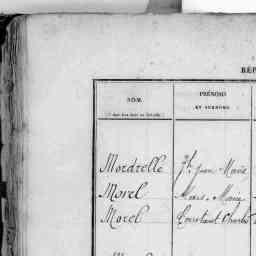 RÉP
NOM.
PRÉNOMS
ET SURNOMS
Mordrelle Jh. Jean Marie
Morel Marc-Marie
Morel Constant Charles